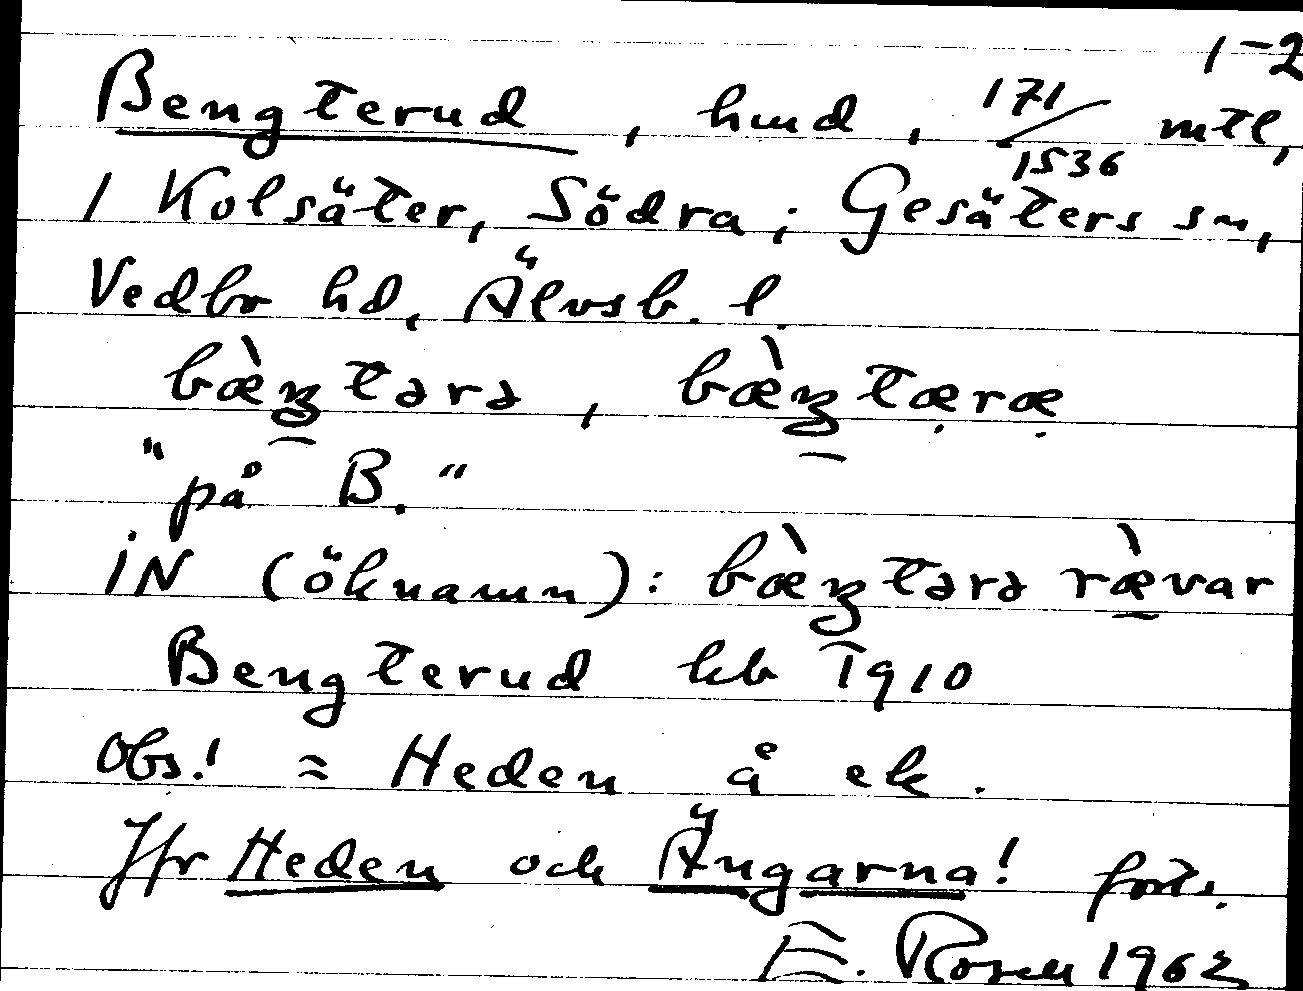 1-2
Bengterud, hmd, 171/1536 mtl,
1 Kolsäter, Södra; Gesäters sn,
Vedbo hd, Älvsb. l.
bæ̀ŋtərə, bæ̀ŋtæ̣ræ̣
"på B."
iN (öknamn): bæ̀ŋtərə ræ̀var
Bengterud kb 1910
Obs.! = Heden å ek.
Jfr Heden och Ängarna! forts.
E. Rosell 1962